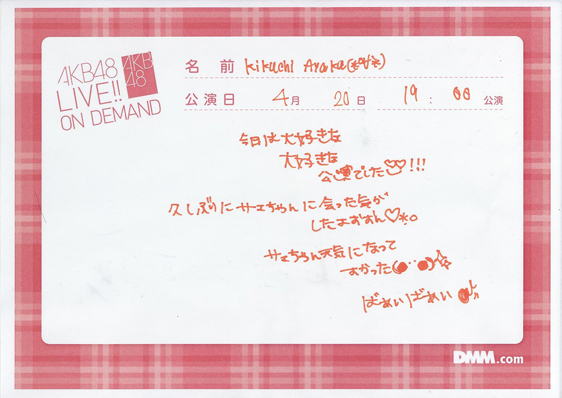 AKB48
LIVE!!
ON DEMAND
AKB
48
名 前 Kikuchi Ayaka
公演日 4月 20日 19:00 公演
今日は大好きな
大好きな
公演でした♡!!!
久しぶりにサエちゃんに会った気が
したよおぉん♡
サエちゃん元気になって
よかった
ばぁいばぁい
DMM.com